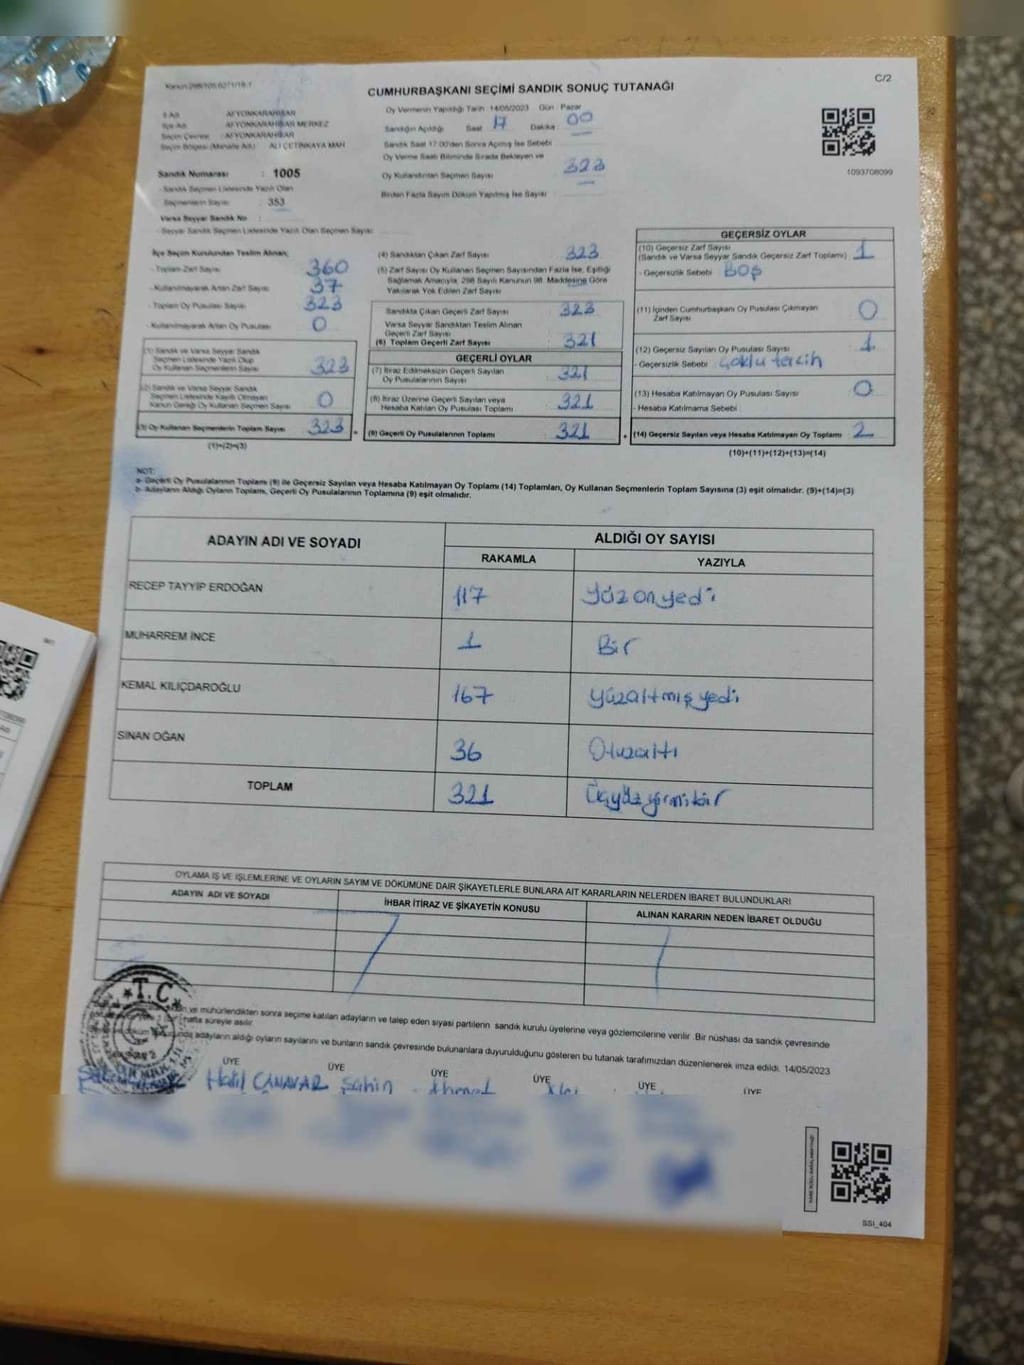 C/2
CUMHURBAŞKANI SEÇİMİ SANDIK SONUÇ TUTANAĞI
İl Adı : AFYONKARAHİSAR
İlçe Adı : AFYONKARAHİSAR MERKEZ
Seçim Çevresi : AFYONKARAHİSAR
Seçim Bölgesi (Mahalle Adı) : ALİ ÇETİNKAYA MAH
Oy Vermenin Yapıldığı Tarih : 14/05/2023 Gün : Pazar
Sandığın Açıldığı Saat 17 Dakika 00
Sandık Saat 17:00'den Sonra Açılmış İse Sebebi
Oy Verme Saati Bitiminde Sırada Bekleyen ve
Oy Kullandırılan Seçmen Sayısı 323
Birden Fazla Sayım Döküm Yapılmış İse Sayısı
1093708099
Sandık Numarası : 1005
Sandık Seçmen Listesinde Yazılı Olan
Seçmenlerin Sayısı : 353
Varsa Seyyar Sandık No :
Seyyar Sandık Seçmen Listesinde Yazılı Olan Seçmen Sayısı:
İlçe Seçim Kurulundan Teslim Alınan;
- Toplam Zarf Sayısı 360
- Kullanılmayarak Artan Zarf Sayısı 37
- Toplam Oy Pusulası Sayısı 323
- Kullanılmayarak Artan Oy Pusulası 0
(1) Sandık ve Varsa Seyyar Sandık
Seçmen Listesinde Yazılı Olup
Oy Kullanan Seçmenlerin Sayısı 323
(2) Sandık ve Varsa Seyyar Sandık
Seçmen Listesinde Kayıtlı Olmayan
Kanun Gereği Oy Kullanan Seçmen Sayısı 0
(3) Oy Kullanan Seçmenlerin Toplam Sayısı 323
(1)+(2)=(3)
(4) Sandıktan Çıkan Zarf Sayısı 323
(5) Zarf Sayısı Oy Kullanan Seçmen Sayısından Fazla İse, Eşitliği
Sağlamak Amacıyla, 298 Sayılı Kanunun 98. Maddesine Göre
Yakılarak Yok Edilen Zarf Sayısı
Sandıkta Çıkan Geçerli Zarf Sayısı 323
Varsa Seyyar Sandıktan Teslim Alınan
Geçerli Zarf Sayısı
(6) Toplam Geçerli Zarf Sayısı 321
GEÇERLİ OYLAR
(7) İtiraz Edilmeksizin Geçerli Sayılan
Oy Pusulalarının Sayısı 321
(8) İtiraz Üzerine Geçerli Sayılan veya
Hesaba Katılan Oy Pusulası Toplamı 321
(9) Geçerli Oy Pusulalarının Toplamı 321
GEÇERSİZ OYLAR
(10) Geçersiz Zarf Sayısı
(Sandık ve Varsa Seyyar Sandık Geçersiz Zarf Toplamı) 1
- Geçersizlik Sebebi : BOŞ
(11) İçinden Cumhurbaşkanı Oy Pusulası Çıkmayan
Zarf Sayısı 0
(12) Geçersiz Sayılan Oy Pusulası Sayısı 1
- Geçersizlik Sebebi : çoklu tercih
(13) Hesaba Katılmayan Oy Pusulası Sayısı 0
- Hesaba Katılmama Sebebi
(14) Geçersiz Sayılan veya Hesaba Katılmayan Oy Toplamı 2
(10)+(11)+(12)+(13)=(14)
NOT:
a- Geçerli Oy Pusulalarının Toplamı (9) ile Geçersiz Sayılan veya Hesaba Katılmayan Oy Toplamı (14) Toplamları, Oy Kullanan Seçmenlerin Toplam Sayısına (3) eşit olmalıdır. (9)+(14)=(3)
b- Adayların Aldığı Oyların Toplamı, Geçerli Oy Pusulalarının Toplamına (9) eşit olmalıdır.
ADAYIN ADI VE SOYADI ALDIĞI OY SAYISI
RAKAMLA YAZIYLA
RECEP TAYYİP ERDOĞAN 117 yüzonyedi
MUHARREM İNCE 1 Bir
KEMAL KILIÇDAROĞLU 167 yüzaltmışyedi
SİNAN OĞAN 36 Otuzaltı
TOPLAM 321 Üçyüzyirmibir
OYLAMA İŞ VE İŞLEMLERİNE VE OYLARIN SAYIM VE DÖKÜMÜNE DAİR ŞİKAYETLERLE BUNLARA AİT KARARLARIN NELERDEN İBARET BULUNDUKLARI
ADAYIN ADI VE SOYADI İHBAR İTİRAZ VE ŞİKAYETİN KONUSU ALINAN KARARIN NEDEN İBARET OLDUĞU
T.C.
ve mühürlendikten sonra seçime katılan adayların ve talep eden siyasi partilerin sandık kurulu üyelerine veya gözlemcilerine verilir. Bir nüshası da sandık çevresinde
hafta süreyle asılır.
adayların aldığı oyların sayılarını ve bunların sandık çevresinde bulunanlara duyurulduğunu gösteren bu tutanak tarafımızdan düzenlenerek imza edildi. 14/05/2023
ÜYE ÜYE ÜYE ÜYE ÜYE ÜYE
Halil CANAVAR Şahin Ahmet
SSI_404